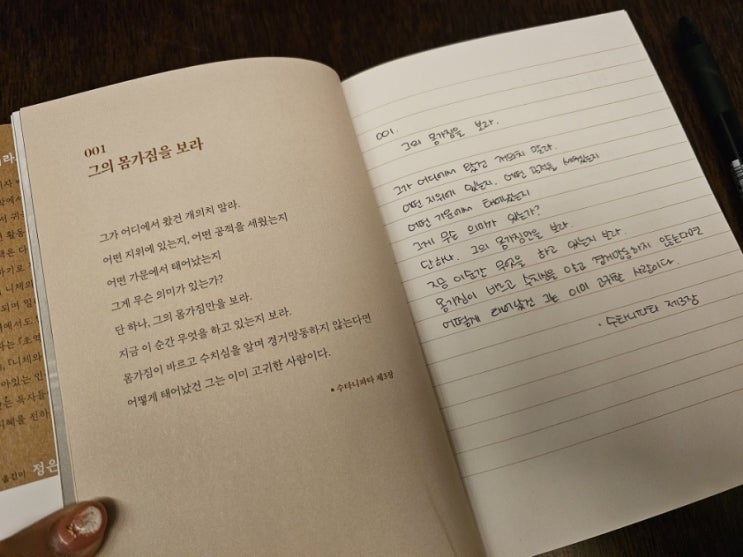 001
그의 몸가짐을 보라
그가 어디에서 왔건 개의치 말라.
어떤 지위에 있는지, 어떤 공적을 세웠는지
어떤 가문에서 태어났는지
그게 무슨 의미가 있는가?
단 하나, 그의 몸가짐만을 보라.
지금 이 순간 무엇을 하고 있는지 보라.
몸가짐이 바르고 수치심을 알며 경거망동하지 않는다면
어떻게 태어났건 그는 이미 고귀한 사람이다.
• 수타니파타 제3장
001.
그의 몸가짐을 보라.
그가 어디에서 왔건 개의치 말라.
어떤 지위에 있는지, 어떤 공적을 세웠는지
어떤 가문에서 태어났는지
그게 무슨 의미가 있는가?
단 하나, 그의 몸가짐만을 보라.
지금 이 순간 무엇을 하고 있는지 보라.
몸가짐이 바르고 수치심을 알고 경거망동하지 않는다면
어떻게 태어났건 그는 이미 고귀한 사람이다.
· 수타니파타 제3장
정은